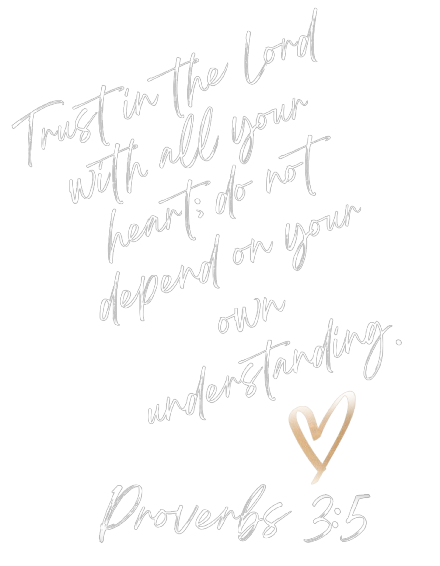 Trust in the Lord
with all your
heart; do not
depend on your
own
understanding.
Proverbs 3:5